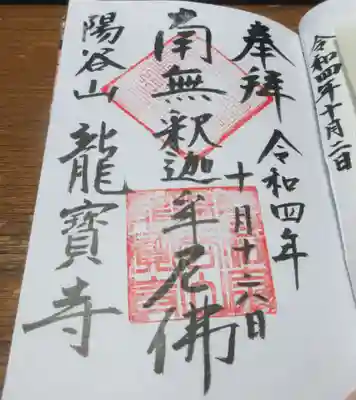 奉拜
令和四年
十月十六日
南無釋迦牟尼佛
陽谷山
龍寶寺
令和四年十月二日